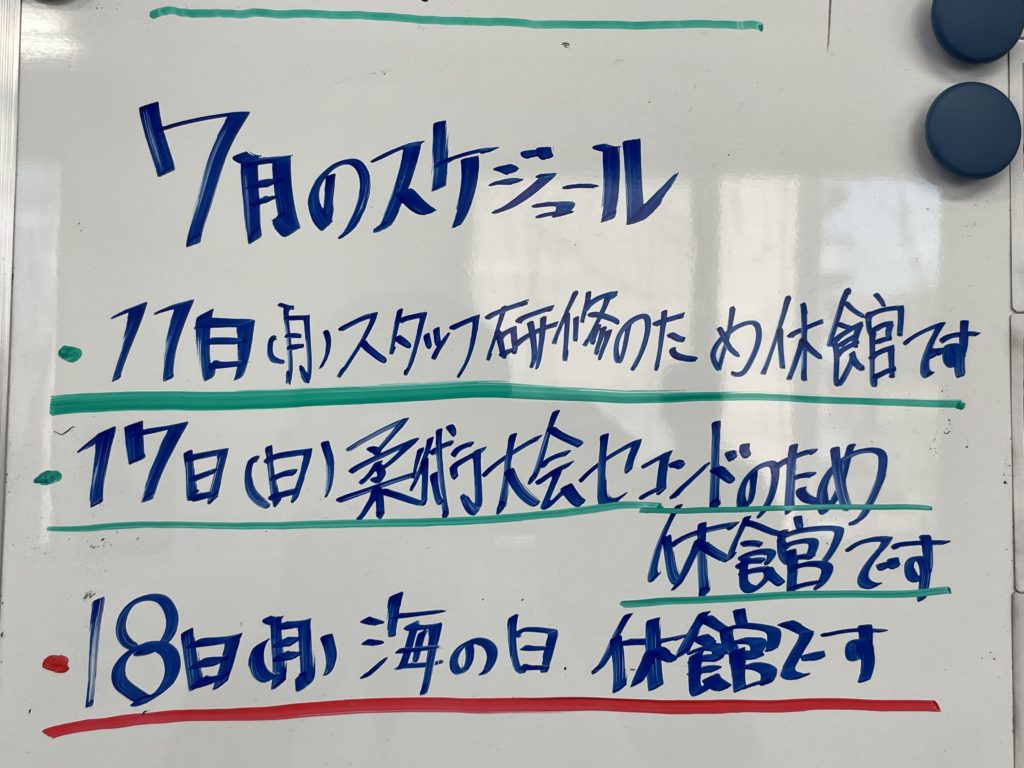 7月のスケジュール
・11日(月)スタッフ研修のため休館です
・17日(日)柔術大会セコンドのため
休館です
・18日(月)海の日 休館です